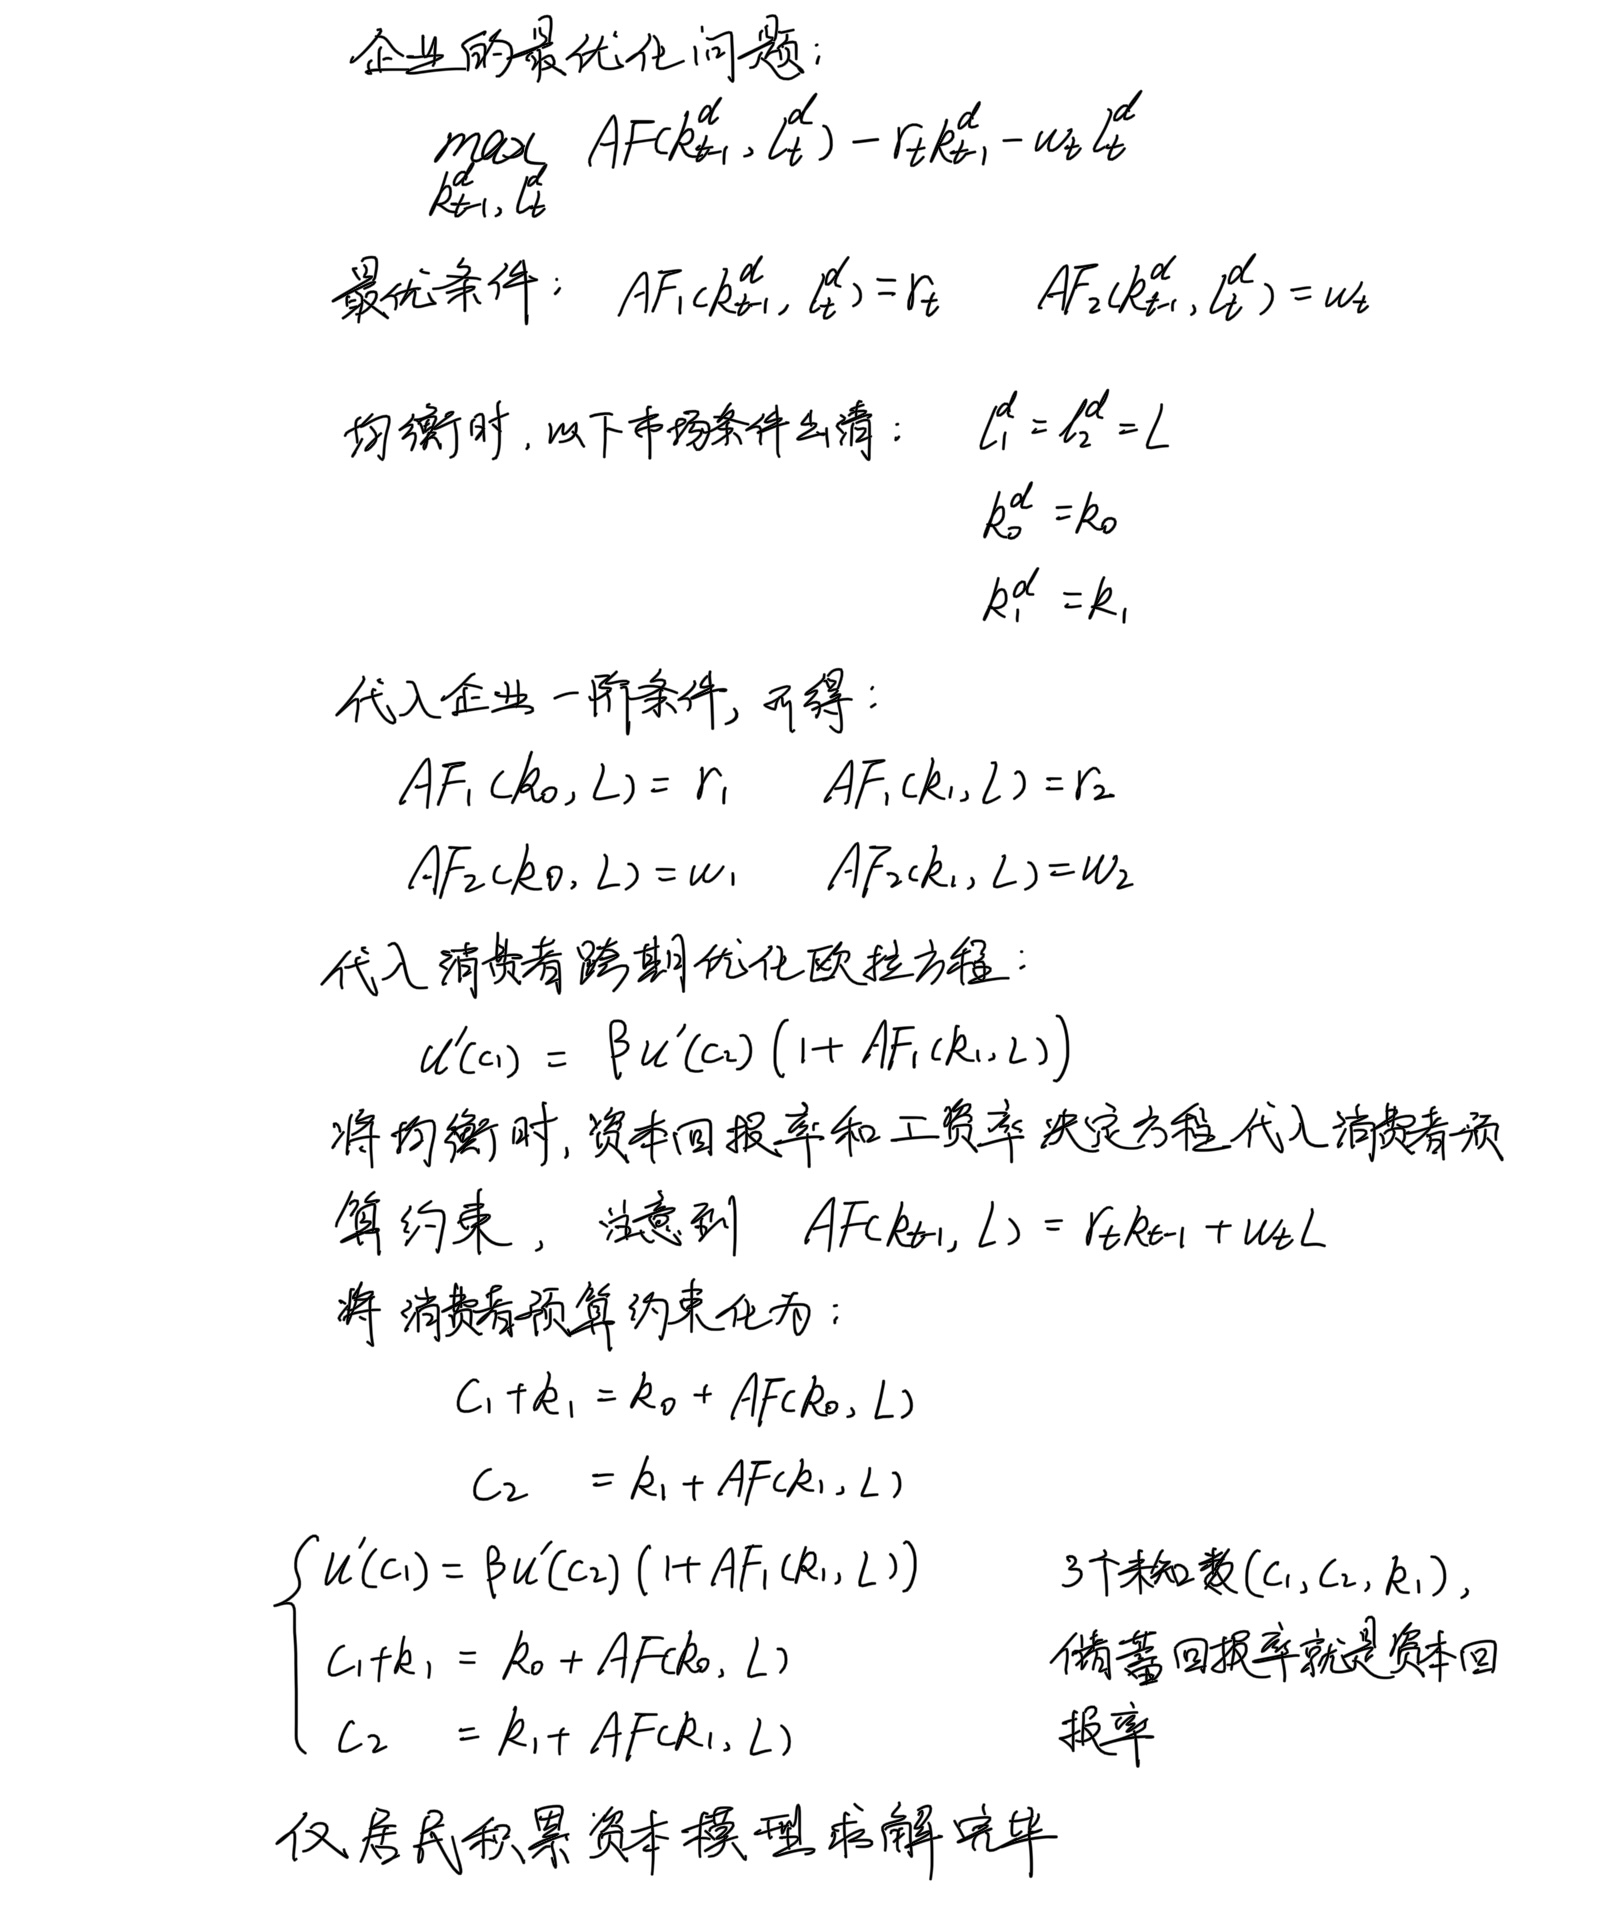 企业的最优化问题:
max AF(k_{t-1}^d, l_t^d) - r_t k_{t-1}^d - w_t l_t^d
k_{t-1}^d, l_t^d
最优条件: AF_1(k_{t-1}^d, l_t^d) = r_t AF_2(k_{t-1}^d, l_t^d) = w_t
均衡时,以下市场条件出清: l_1^d = l_2^d = L
k_0^d = k_0
k_1^d = k_1
代入企业一阶条件,可得:
AF_1(k_0, L) = r_1 AF_1(k_1, L) = r_2
AF_2(k_0, L) = w_1 AF_2(k_1, L) = w_2
代入消费者跨期优化欧拉方程:
u'(c_1) = βu'(c_2)(1+AF_1(k_1, L))
将均衡时,资本回报率和工资率决定方程代入消费者预
算约束, 注意到 AF(k_{t-1}, L) = r_t k_{t-1} + w_t L
将消费者预算约束化为:
c_1+k_1 = k_0 + AF(k_0, L)
c_2 = k_1 + AF(k_1, L)
u'(c_1) = βu'(c_2)(1+AF_1(k_1, L)) 3个未知数(c_1, c_2, k_1),
c_1+k_1 = k_0 + AF(k_0, L) 储蓄回报率就是资本回
c_2 = k_1 + AF(k_1, L) 报率
仅居民积累资本模型求解完毕